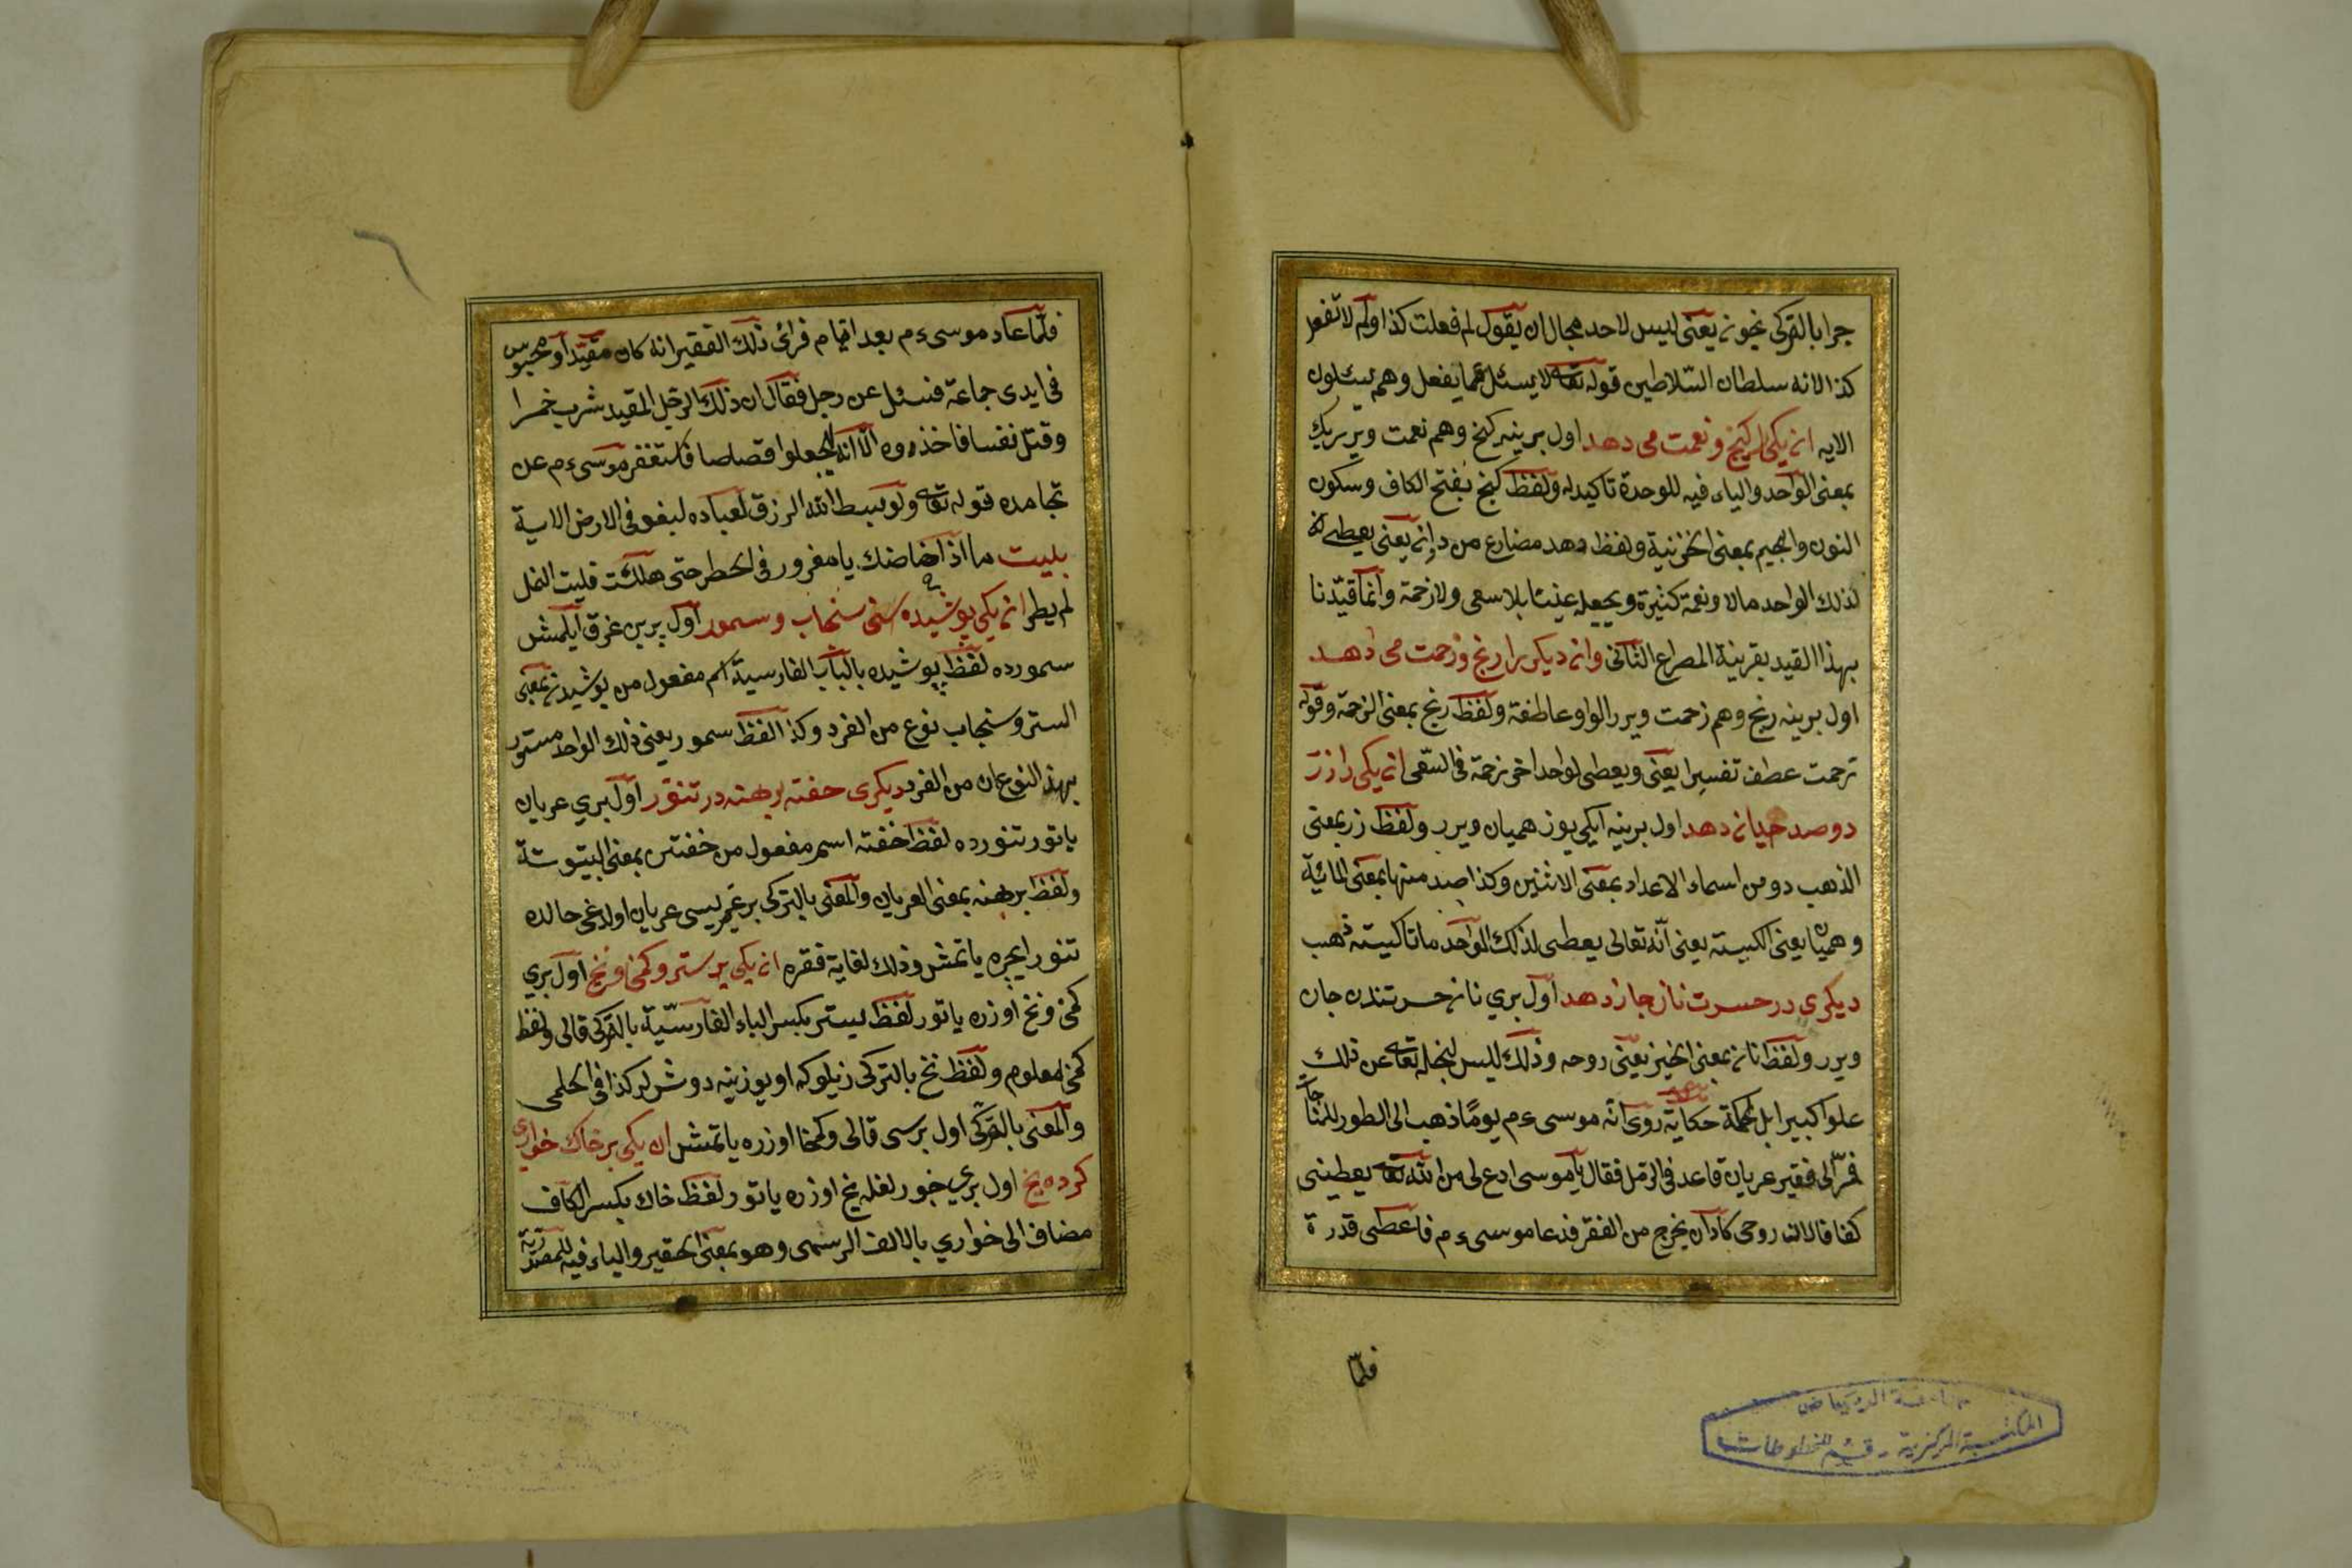 چرا بالتركى نيچونه يعنى ليس لاحد مجال ان يقول لم فعلت كذا ولم لا تفعل
كذا لانه سلطان السّلاطين قوله تعالى لا يسئل عما يفعل وهم يسئلون
الايه ان يكى را كنج ونعمت مى دهد اول برينه كنج وهم نعمت ويرر يك
بمعنى الواحد والياء فيه للوحدة تاكيد له ولفظ كنج بفتح الكاف وسكون
النون والجيم بمعنى الخزنية ولفظ دهد مضارع من دادن يعنى يعطى الله
لذلك الواحد مالا ونعمة كثيرة ويجعله غنيا بلا سعى ولا زحمة وانّما قيّدنا
بهذا القيد بقرينة المصراع الثّانى وان ديكر را رنج وزحمت مى دهد
اول برينه رنج وهم زحمت ويرر الواو عاطفة ولفظ رنج بمعنى الزحمة وقوله
زحمت عطف تفسيرا يعنى ويعطى لواحد اخر زحمة فى السّعى ان يكى را زر
دو صد هميان دهد اول برينه ايكى يوز هميان ويرر ولفظ زر بمعنى
الذهب دو من اسماء الاعداد بمعنى الاثنين وكذا صد منها بمعنى المائية
وهميان يعنى الكيسته يعنى انّه تعالى يعطى لذلك الواحد ماتا كيسته ذهب
ديكرى در حسرت نان جان دهد اول برى نان حسرتندن جان
ويرر ولفظ نان بمعنى الخبز يعنى روحه وذلك ليس لبخله تعالى عن ذلك
علوا كبيرا بل لحكمة حكاية روى انّه موسى ءم يومًا ذهب الى الطور للمناجات
فمرّ الى فقير عريان قاعد فى الرّمل فقال يا موسى ادع لى من الله تعالى يعطينى
كفافا لان روحى كاد ان يخرج من الفقر فدعا موسى ءم فاعطى قدرة
فلمّا
فلمّا عاد موسى ءم بعد ايّام فرائ ذلك الفقير انه كان مقيّدا ومحبوس
فى ايدى جماعة فسئل عن رجل فقال ان ذلك الرّجل المقيد شرب خمرا
وقتل نفسا فاخذوه الّا انه ليجعلوا قصاصا فاستغفر موسى ءم عن
تجاسره قوله تعالى ولو بسط الله الرزق لعباده لبغوا فى الارض الاية
بليت ما اذا خاضك يا مغرور فى الخطر حتى هلكت فليت النمل
لم يطر ان يكى پوشيده سنجاب وسمور اول برين غرق ايلمش
سمورده لفظ پوشيده بالباب الفارسية اسم مفعول من پوشيدن بمعنى
الستر وسنجاب نوع من الفرد وكذا لفظ سمور يعنى ذلك الواحد مستور
بهذا النوعان من الفرد ديكرى خفته برهنه در تنور اول برى عريان
ياتور تنورده لفظ خفته اسم مفعول من خفتن بمعنى البيتوتة
ولفظ برهنه بمعنى العريان والمعنى بالتركى بر غيريسى عريان اولدغى حالده
تنور ايچره ياتمش وذلك لغاية فقره ان يكى بر بستر وكمخا ونخ اول برى
كمخا ونخ اوزره ياتور لفظ بستر بكسر الباء الفارسّية بالتركى قالى ولفظ
كمخا معلوم ولفظ نخ بالتركى زيلوكه اويوزينه دوشرلر كذا فى الحلمى
والمعنى بالتركى اول برسى قالى وكمخا اوزره ياتمش ان يكى بر خاك خوارى
كرده يخ اول برى خورلغله يخ اوزره ياتور لفظ خاك بكسر الكاف
مضاف الى خوارى بالالف الرسمى وهو بمعنى الحقير والياء فيه للمصدرية
جامعة الرياض
المكتبة المركزية - قسم المخطوطات